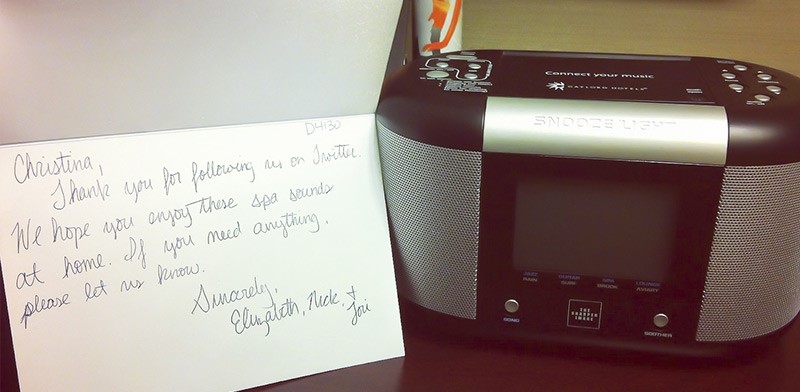 D4130
Christina,
Thank you for following us on Twitter.
We hope you enjoy these spa sounds
at home. If you need anything,
please let us know.
Sincerely,
Elizabeth, Nick, &
Tori
Connect your music
GAYLORD HOTELS
SNOOZE/LIGHT
RAIN
SURF
BROOK
AVIARY
THE
SHARPER
IMAGE
SOOTHER